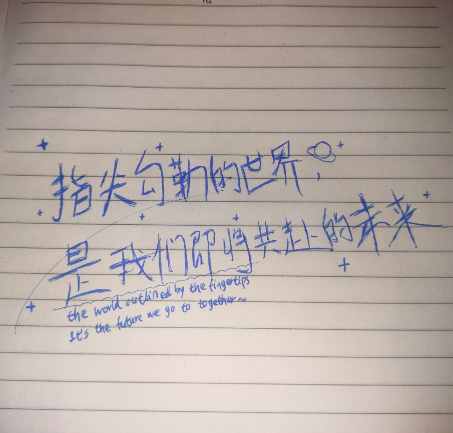 指尖勾勒的世界,
是我们即将共赴的未来
the world outlined by the fingertips
It's the future we go to together~